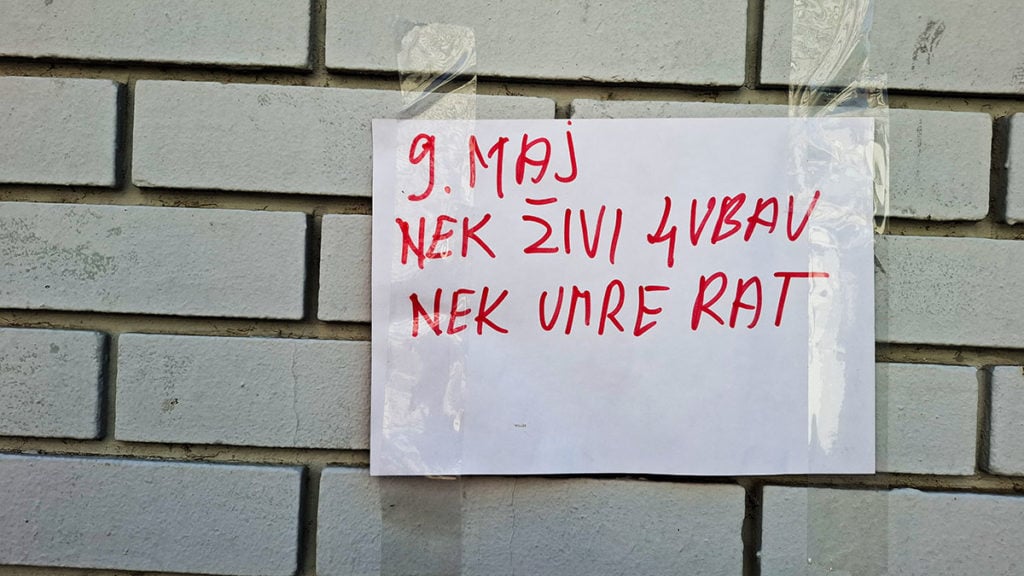 9. MAJ
NEK ŽIVI LJUBAV
NEK UMRE RAT